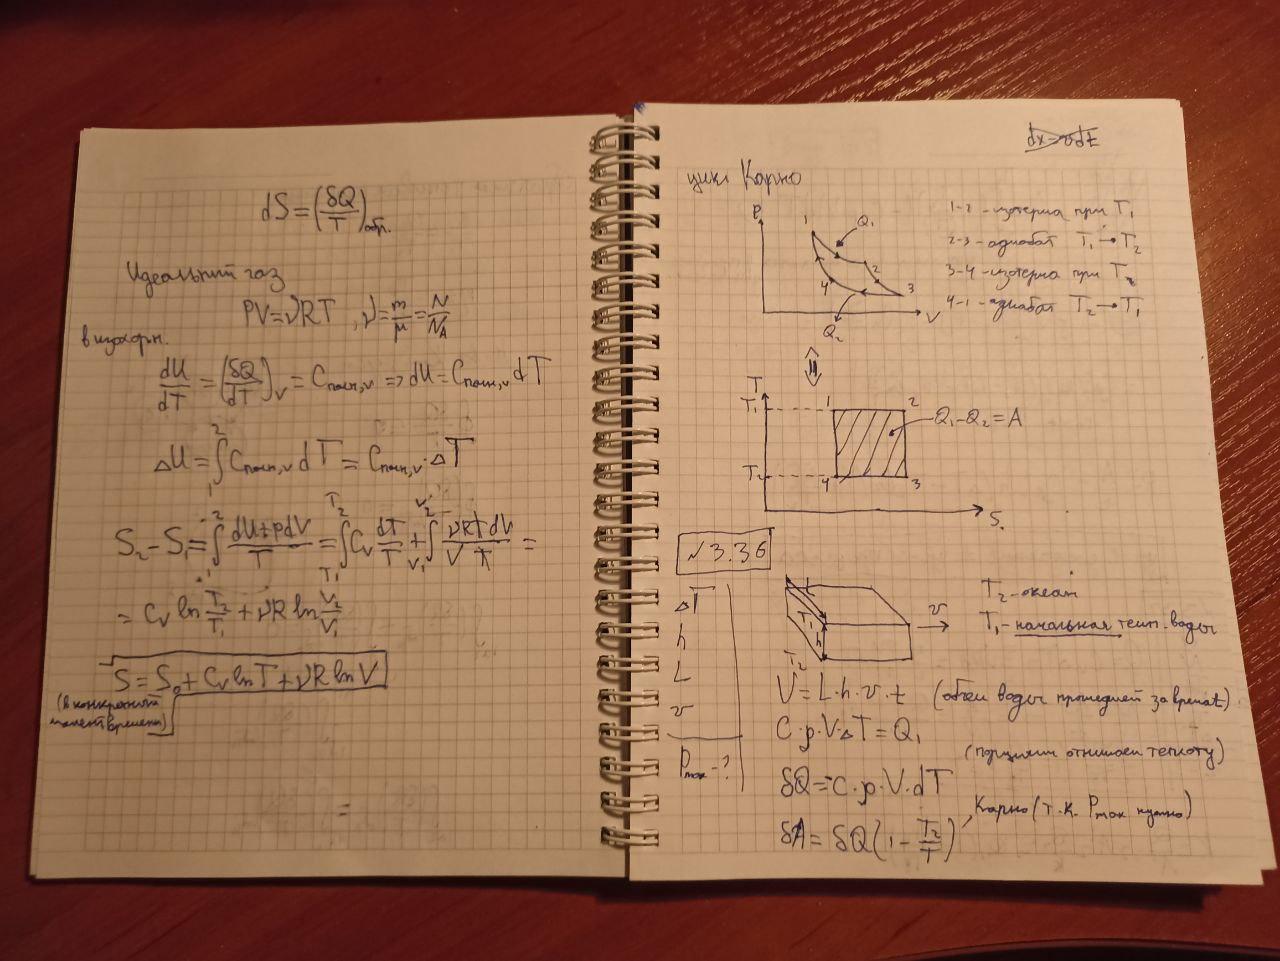 dS = (δQ/T)обр.
Идеальный газ
PV = νRT, ν = m/μ = N/N_A
в изохорн.
dU/dT = (δQ/dT)_V = C_полн,v => dU = C_полн,v dT
ΔU = ∫₁² C_полн,v dT = C_полн,v · ΔT
S₂ - S₁ = ∫₁² (dU + pdV)/T = ∫_T₁^T₂ C_V dT/T + ∫_V₁^V₂ νRT dV/(V T) =
= C_V ln T₂/T₁ + νR ln V₂/V₁
S = S₀ + C_V ln T + νR ln V
(в конкретный
момент времени)
=
dx = vdt
цикл Карно
P
1
Q₁
2
3
4
Q₂
V
1-2 - изотерма при T₁
2-3 - адиабат T₁ → T₂
3-4 - изотерма при T₂
4-1 - адиабат T₂ → T₁
T
T₁
1
2
Q₁ - Q₂ = A
T₂
4
3
S.
№3.36
ΔT
h
L
v
P_max - ?
L
T₁
h
T₂
v
T₂ - океан
T₁ - начальная темп. воды
V = L·h·v·t (объем воды прошедшей за время t)
C·ρ·V·ΔT = Q₁
(порциями отнимаем теплоту)
δQ = C·ρ·V·dT
δA = δQ(1 - T₂/T), Карно (т.к. P_max нужно)